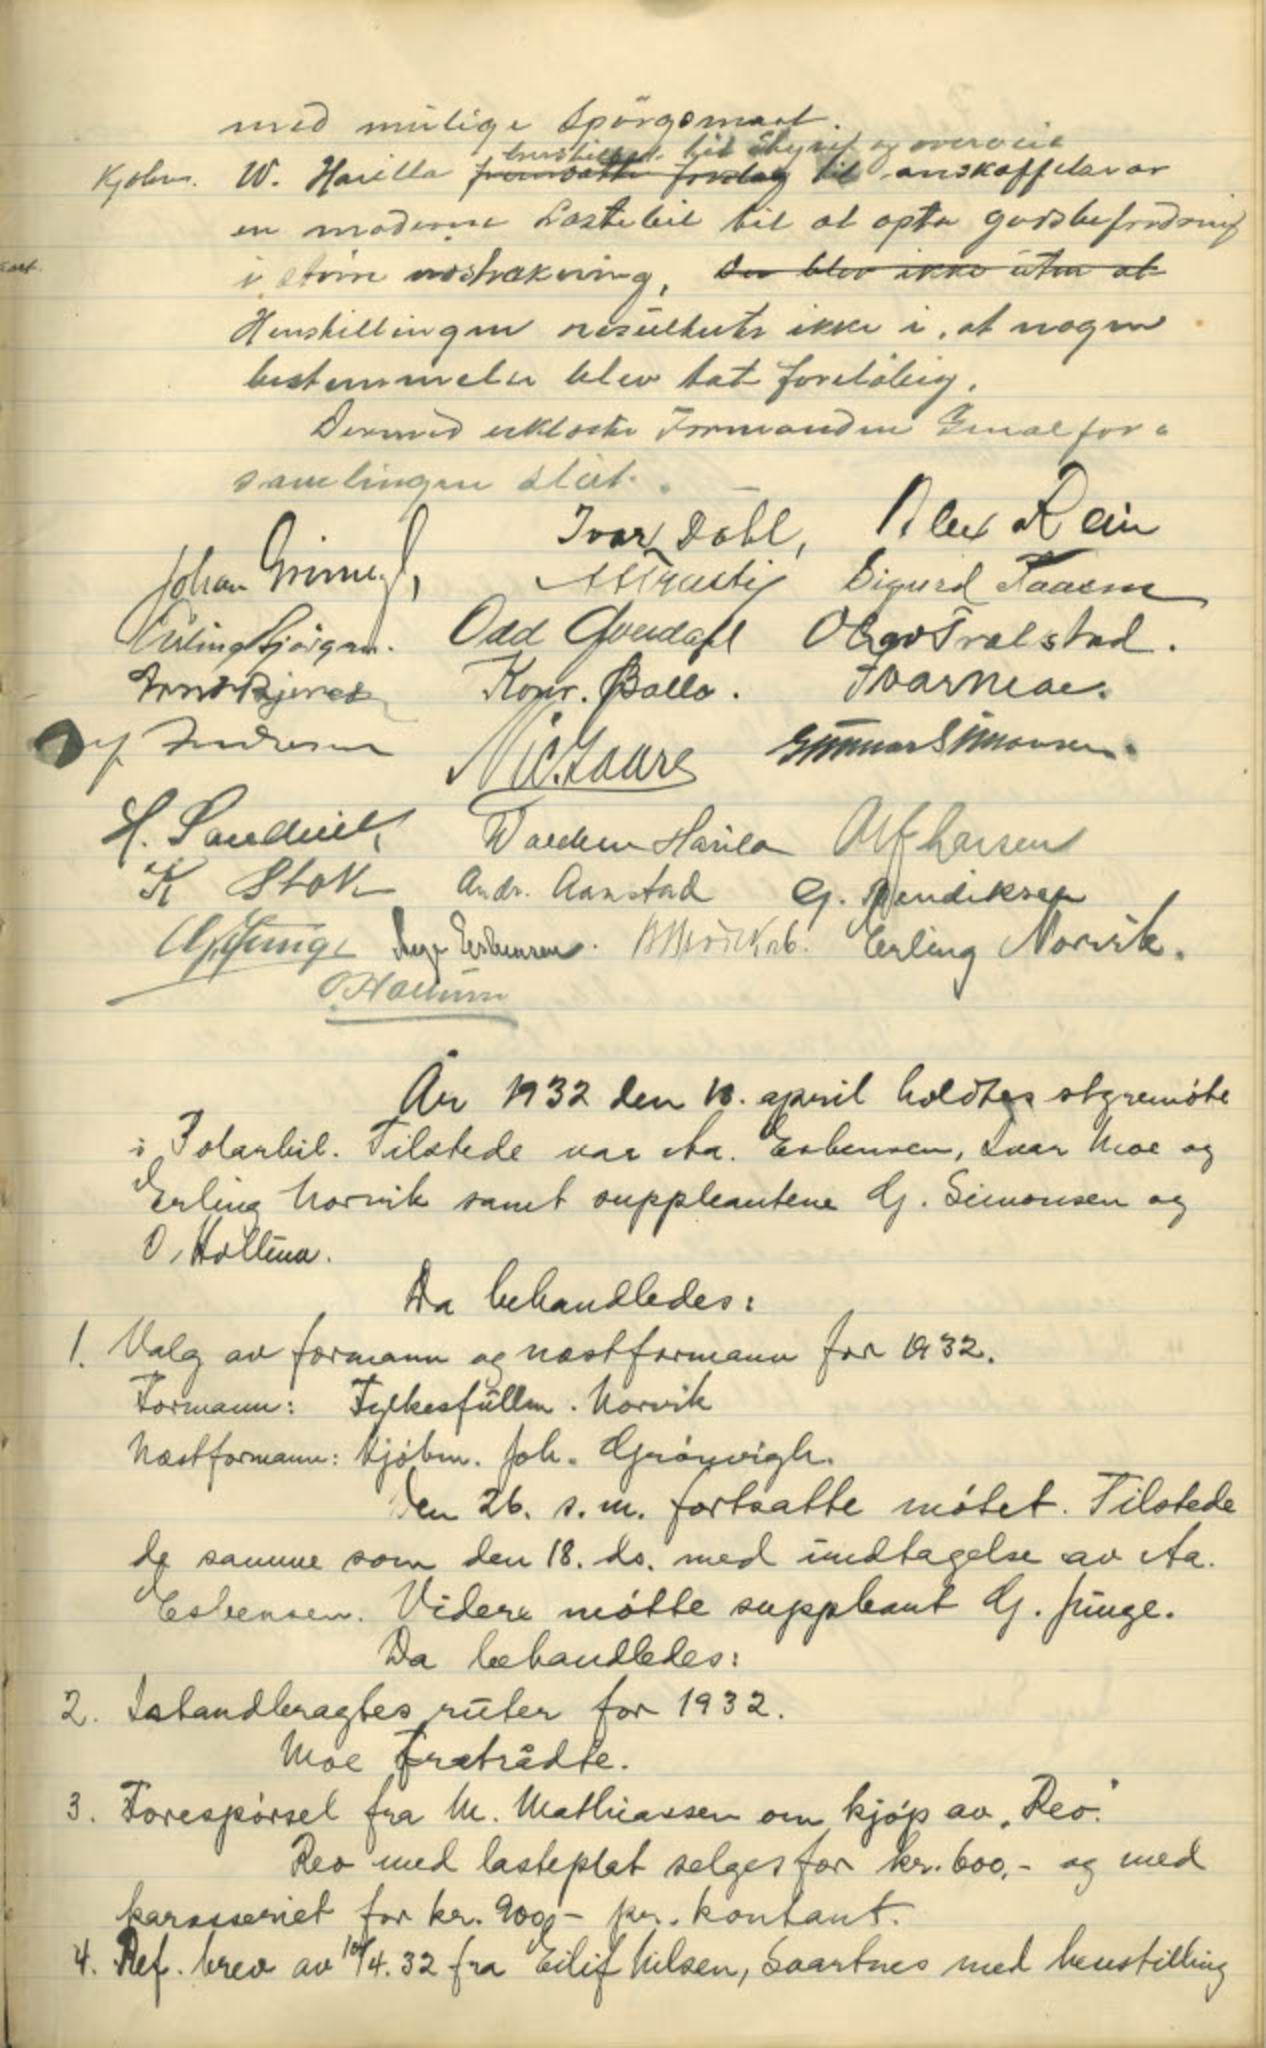 med mulige Spörgsmaal.
henstillet til Styret og overveie
Kjøbm. W. Harilla fremsatte forslag til anskaffelse av
en moderne Lastebil til at opta godsbefordring
i större utstrekning, Der blev ikke uten at
Henstillingen resulterte ikke i, at nogen
bestemmelse blev tat foreløbig.
Dermed erklærte Formanden Generalfor=
samlingen slut.
Ivar Dahl, Alex Rein
Johan Grönvigh,
Sigurd
Erling Björgan. Odd Olgo Tralstad.
Konr. Balle. Ivar Moe.
Nic. Gunnar Simonsen.
H. Sandvik, Waldem Harila Alf Larsen
K Andr. Aanstad G. Bendiksen
G. Junge Aage Esbensen. Erling Norvik.
O. Hallum
År 1932 den 18. april holdtes styremøte
i Polarbil. Tilstede var Aa. Esbensen, Ivar Moe og
Erling Norvik samt suppleantene G. Simonsen og
O. Hallum.
Da behandledes:
1. Valg av formann og næstformann for 1932.
Formann: Fylkesfullm. Norvik
Næstformann: Kjøbm. Joh. Grönvigh.
Den 26. s.m. fortsatte møtet. Tilstede
de samme som den 18. ds. med undtagelse av Aa.
Esbensen. Videre møtte suppleant G. Junge.
Da behandledes:
2. Istandbragtes ruter for 1932.
Moe fratrådte.
3. Forespørsel fra M. Mathiassen om kjøp av „Reo."
Reo med lasteplat selges for kr. 600,- og med
karosseriet for kr. 900,- pr. kontant.
4. Ref. brev av 10/4.32 fra Eilif Nilsen, Svartnes med henstilling